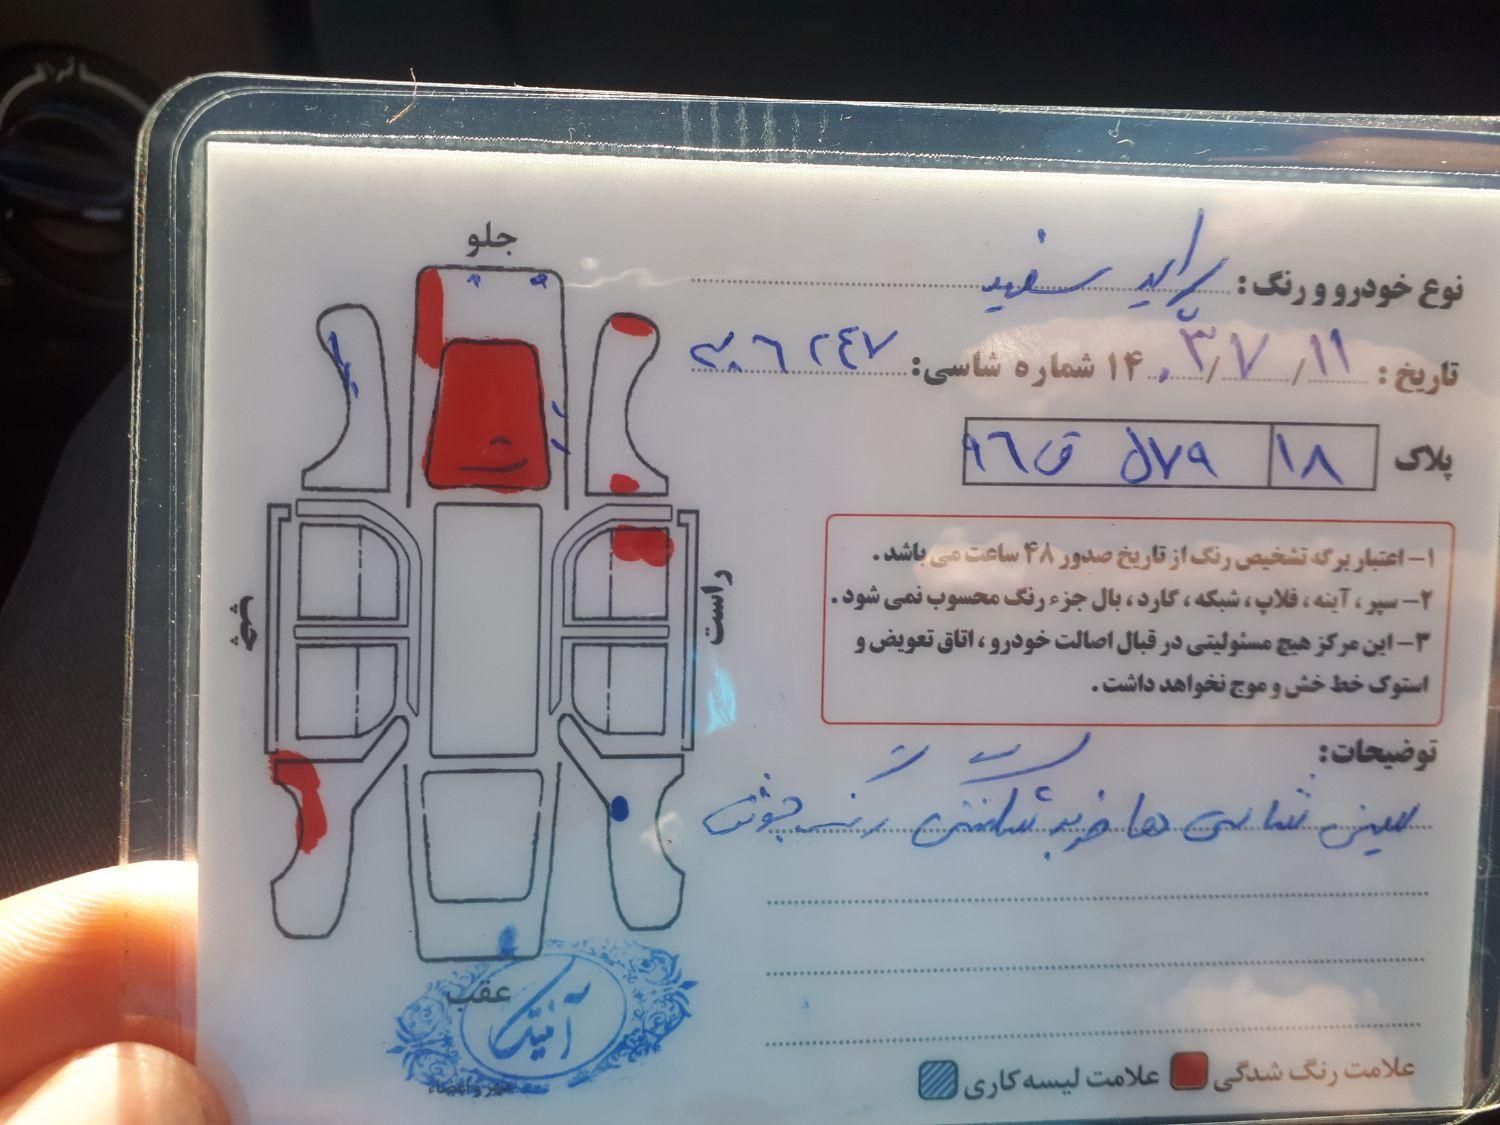 جلو
نوع خودرو و رنگ: پراید سفید
تاریخ: ۱۱/۷/۱۴۰۳ شماره شاسی: ۳۰۶۲۴۷
پلاک ۱۸ ۷۹ل ق۹۶
۱- اعتبار برگه تشخیص رنگ از تاریخ صدور ۴۸ ساعت می باشد.
۲- سپر، آینه، فلاپ، شبکه، گارد، بال جزء رنگ محسوب نمی شود.
۳- این مرکز هیچ مسئولیتی در قبال اصالت خودرو، اتاق تعویض و
استوک خط خش و موج نخواهد داشت.
راست
چپ
توضیحات:
سینی شاسی ها
عقب
آنتیک
مهر و امضاء
علامت رنگ شدگی
علامت لیسه کاری